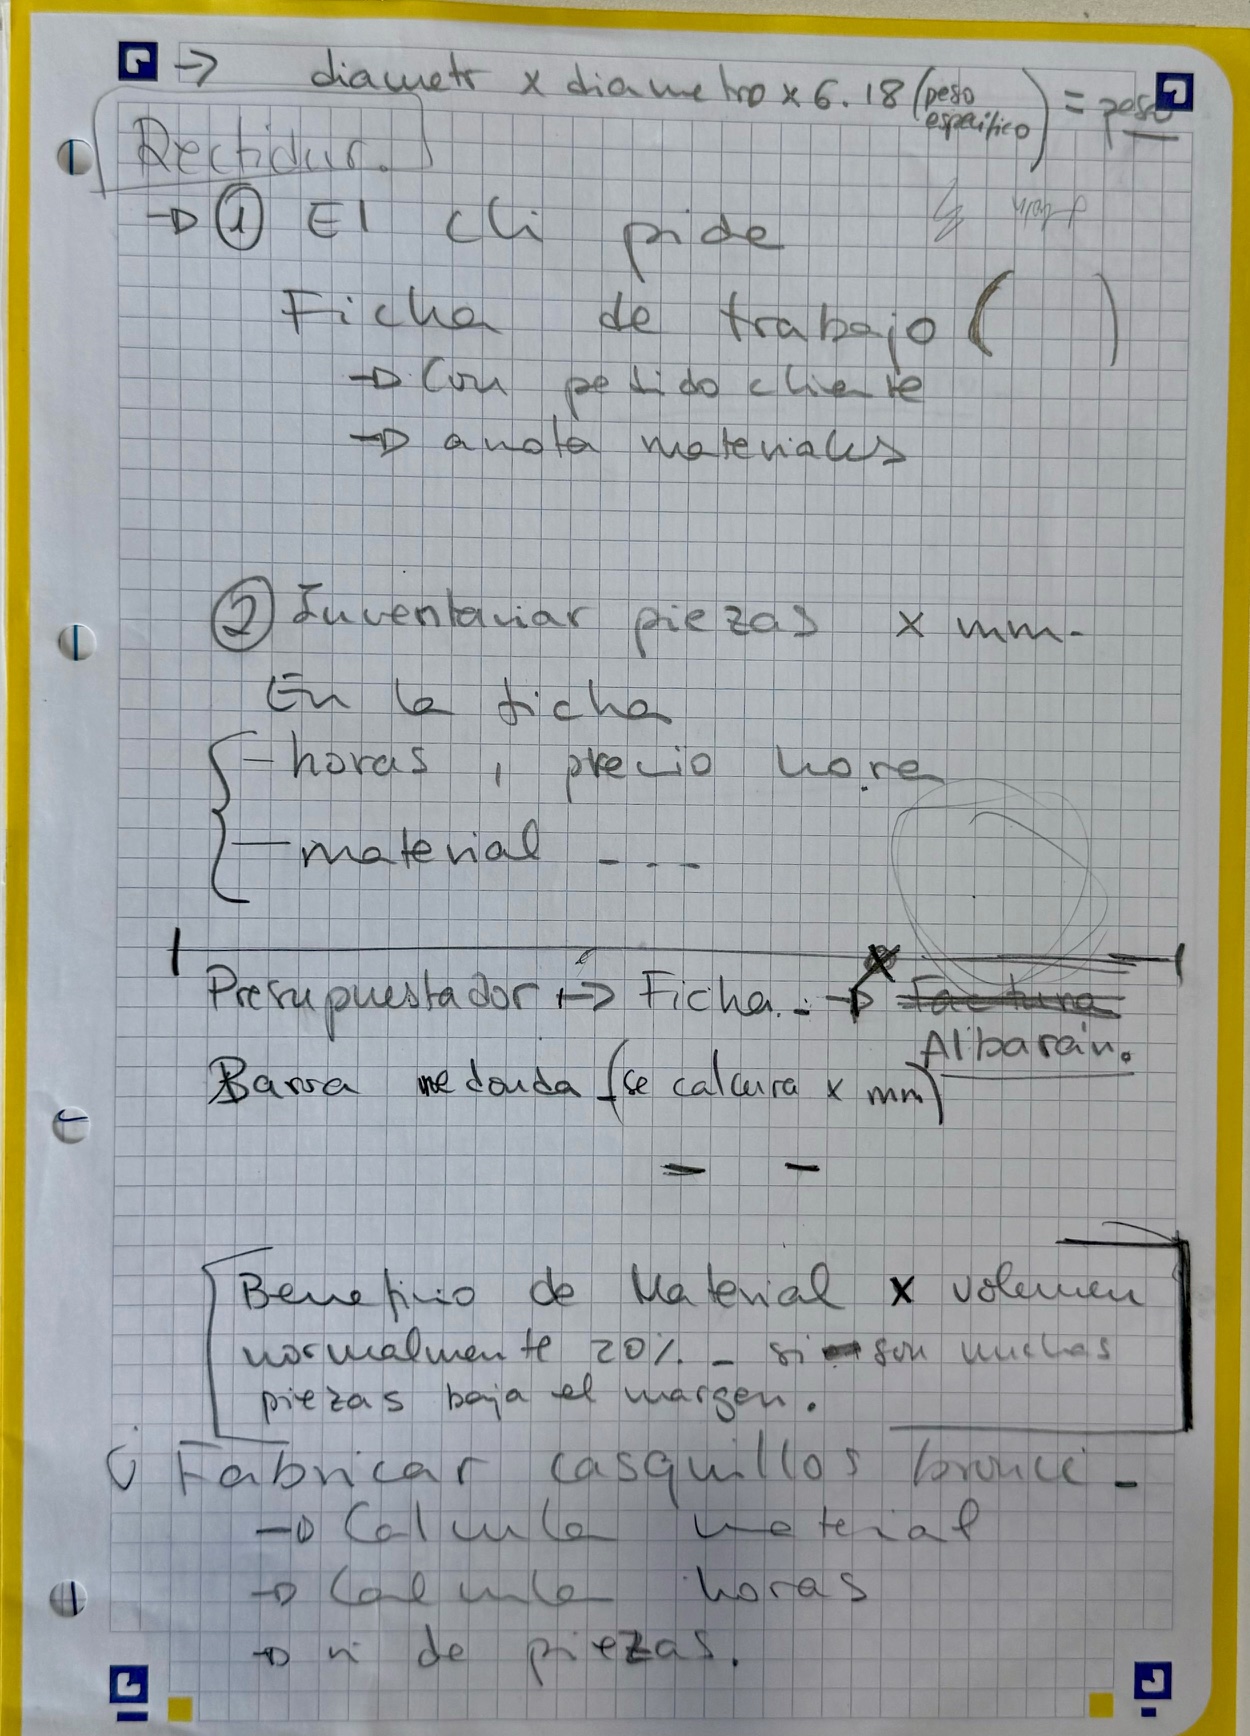 → diametr x diametro x 6.18 (peso especifico) = peso
Rectidur.
→ ① El cli pide
Ficha de trabajo ( )
→ Con pedido cliente
→ anota materiales
② Inventariar piezas x mm.
En la ficha
- horas, precio hora
- material - - -
Presupuestador → Ficha. → Factura
Albarán.
Barra redonda (se calcura x mm)
- -
Beneficio de Material x volumen
normalmente 20% - si son muchas
piezas baja el margen.
Fabricar casquillos bronce -
→ Calcula material
→ Calcula horas
→ n de piezas.